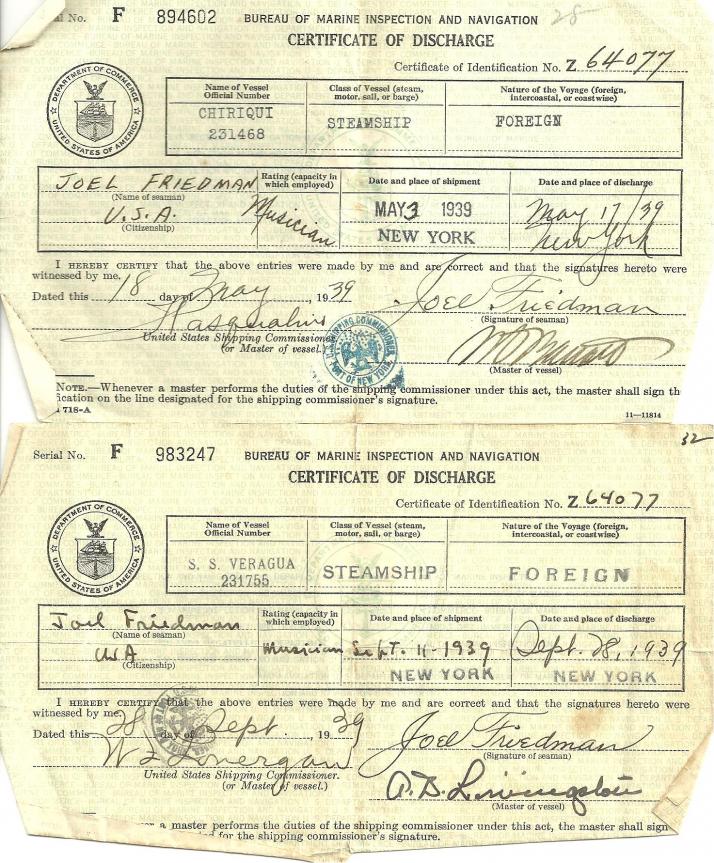 al No. F 894602 BUREAU OF MARINE INSPECTION AND NAVIGATION 28
CERTIFICATE OF DISCHARGE
Certificate of Identification No. Z 64077
DEPARTMENT OF COMMERCE
UNITED STATES OF AMERICA
Name of Vessel Class of Vessel (steam, Nature of the Voyage (foreign,
Official Number motor, sail, or barge) intercoastal, or coastwise)
CHIRIQUI STEAMSHIP FOREIGN
231468
JOEL FRIEDMAN Rating (capacity in Date and place of shipment Date and place of discharge
(Name of seaman) which employed)
U.S.A. Musician MAY 3 1939 May 17/39
(Citizenship) NEW YORK New York
I HEREBY CERTIFY that the above entries were made by me and are correct and that the signatures hereto were
witnessed by me.
Dated this 18 day of May, 1939 Joel Friedman
(Signature of seaman)
United States Shipping Commissioner
(or Master of vessel.)
U.S. SHIPPING COMMISSIONER
PORT OF NEW YORK
(Master of vessel)
NOTE.—Whenever a master performs the duties of the shipping commissioner under this act, the master shall sign th
fication on the line designated for the shipping commissioner's signature.
718-A 11—11814
32
Serial No. F 983247 BUREAU OF MARINE INSPECTION AND NAVIGATION
CERTIFICATE OF DISCHARGE
Certificate of Identification No. Z 64077
DEPARTMENT OF COMMERCE
UNITED STATES OF AMERICA
Name of Vessel Class of Vessel (steam, Nature of the Voyage (foreign,
Official Number motor, sail, or barge) intercoastal, or coastwise)
S. S. VERAGUA STEAMSHIP FOREIGN
231755
Joel Friedman Rating (capacity in Date and place of shipment Date and place of discharge
(Name of seaman) which employed)
USA Musician Sept. 11-1939 Sept. 28, 1939
(Citizenship) NEW YORK NEW YORK
I HEREBY CERTIFY that the above entries were made by me and are correct and that the signatures hereto were
witnessed by me.
Dated this 28 day of Sept, 1939 Joel Friedman
(Signature of seaman)
W Lonergan
United States Shipping Commissioner. A. D. Livingston
(or Master of vessel.) (Master of vessel)
er a master performs the duties of the shipping commissioner under this act, the master shall sign
d for the shipping commissioner's signature.